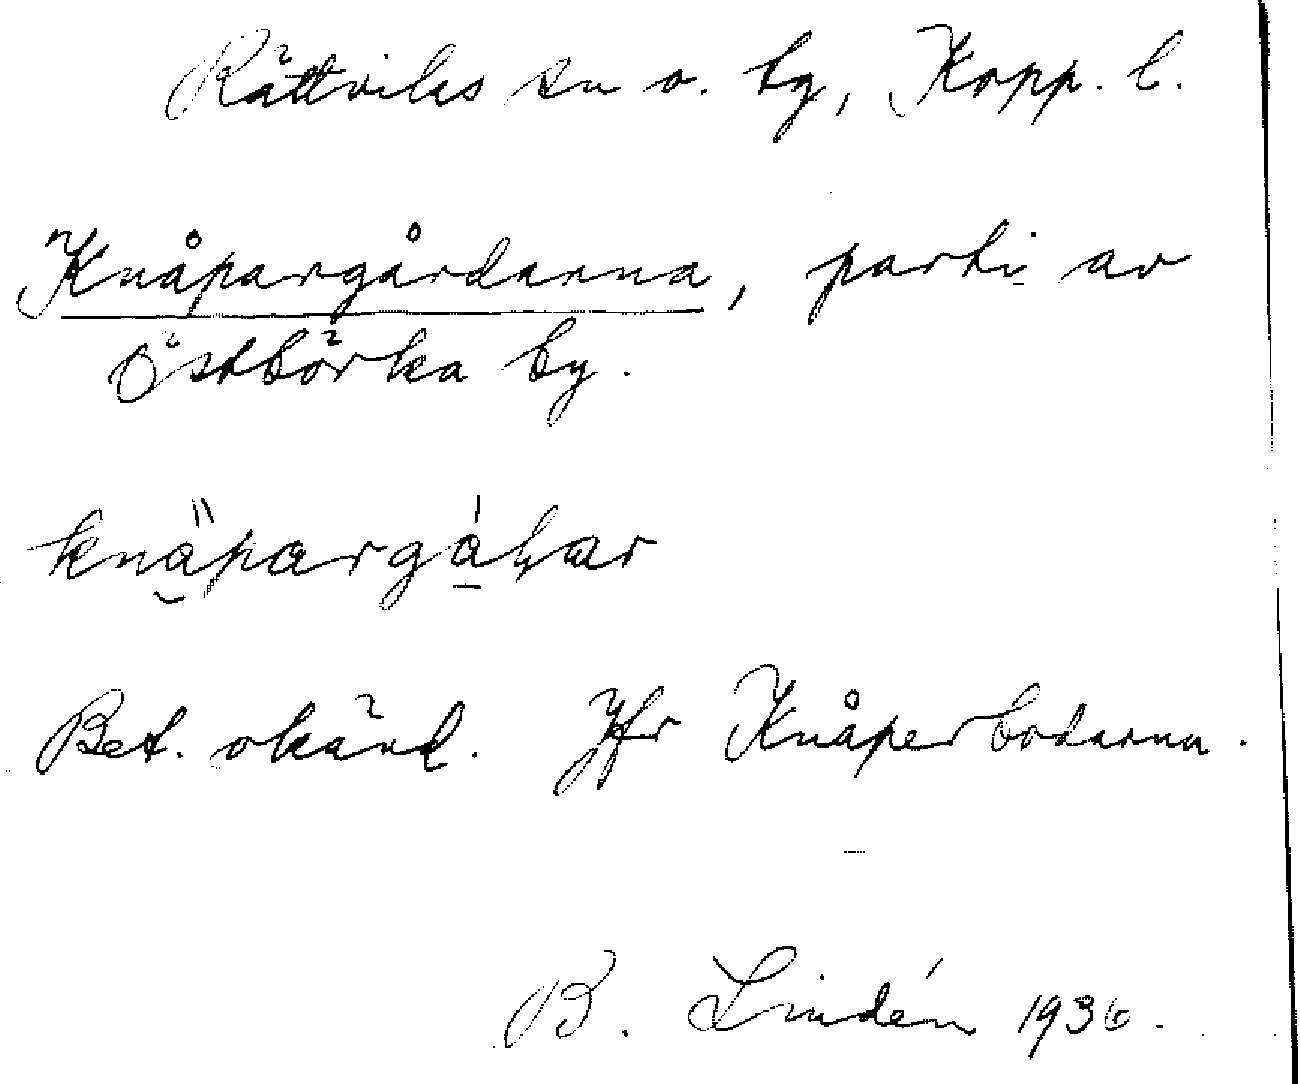 Rättviks sn o. tg, Kopp. l.
Knåpargårdarna, parti av
Östbörka by.
Bet. okänd. Jfr Knåperbodarna.
B. Lindén 1936.